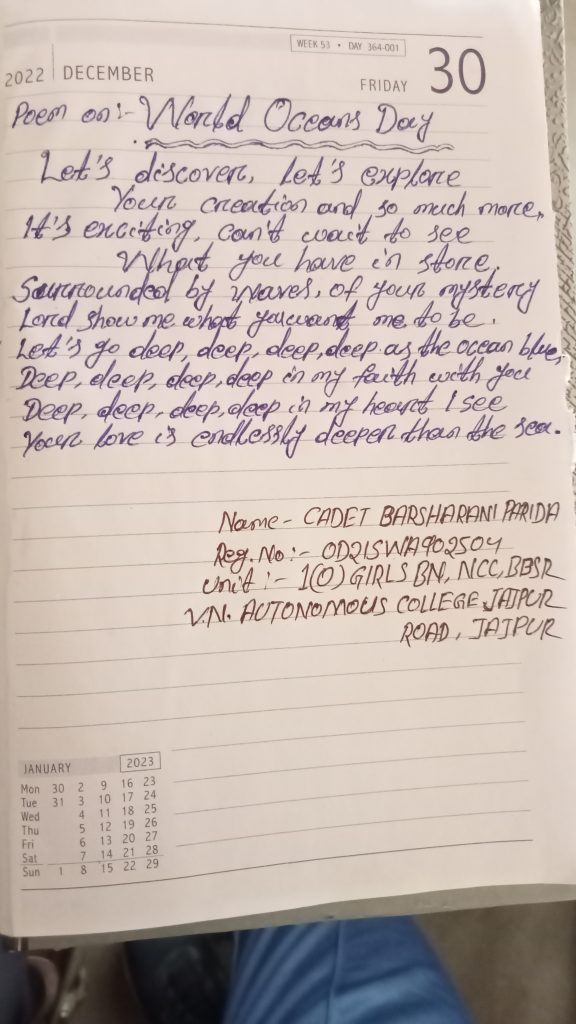 WEEK 53 • DAY 364-001
2022 DECEMBER
FRIDAY 30
Poem on:- World Oceans Day
Let's discover, Let's explore
Your creation and so much more,
It's exciting, can't wait to see
What you have in store,
Surrounded by waves, of your mystery
Lord show me what you want me to be.
Let's go deep, deep, deep, deep as the ocean blue,
Deep, deep, deep, deep in my faith with you
Deep, deep, deep, deep in my heart I see
Your love is endlessly deeper than the sea.
Name - CADET BARSHARANI PARIDA
Reg. No :- OD21SWA902504
Unit :- 1(O) GIRLS BN, NCC, BBSR
V.N. AUTONOMOUS COLLEGE, JAJPUR
ROAD, JAJPUR
JANUARY 2023
Mon 30 2 9 16 23
Tue 31 3 10 17 24
Wed 4 11 18 25
Thu 5 12 19 26
Fri 6 13 20 27
Sat 7 14 21 28
Sun 1 8 15 22 29